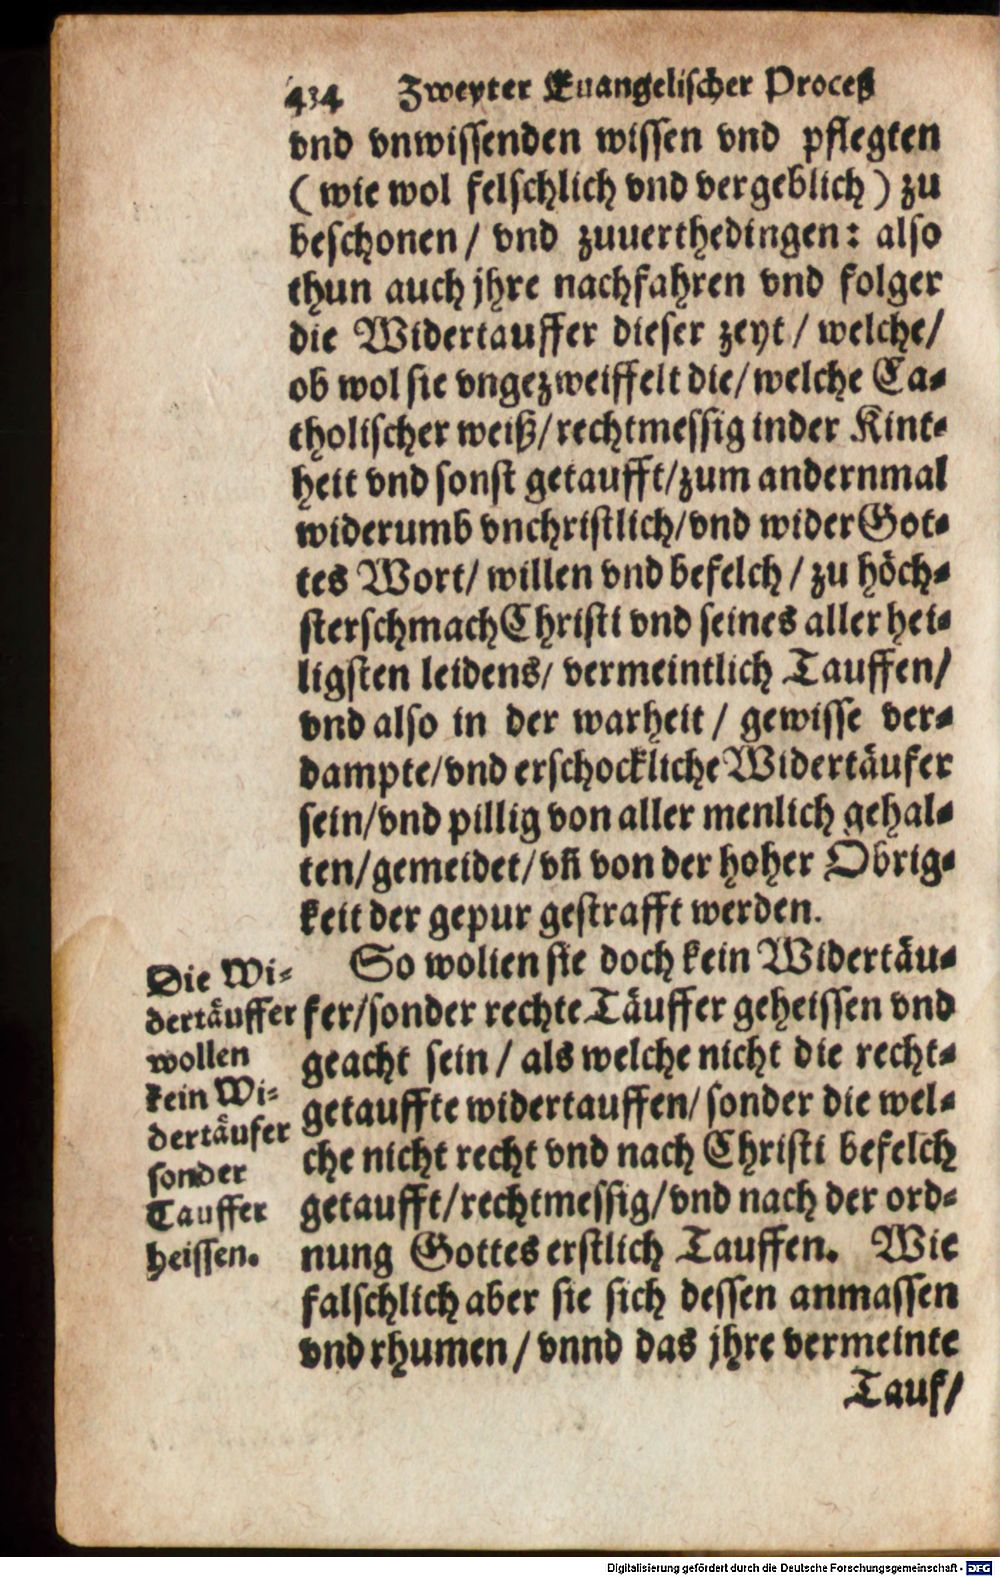 434 Zweyter Euangelischer Proceß
vnd vnwissenden wissen vnd pflegten
( wie wol felschlich vnd vergeblich ) zu
beschonen / vnd zuuerthedingen: also
thun auch jhre nachfahren vnd folger
die Widertauffer dieser zeyt / welche/
ob wol sie vngezweiffelt die/ welche Ca⸗
tholischer weiß/ rechtmessig inder Kint⸗
heit vnd sonst getaufft/ zum andernmal
widerumb vnchristlich/ vnd wider Got⸗
tes Wort/ willen vnd befelch / zu höch⸗
sterschmach Christi vnd seines aller hei⸗
ligsten leidens/ vermeintlich Tauffen/
vnd also in der warheit / gewisse ver⸗
dampte/ vnd erschockliche Widertäufer
sein/ vnd pillig von aller menlich gehal⸗
ten/ gemeidet/ vñ von der hoher Obrig⸗
keit der gepur gestrafft werden.
So wolien sie doch kein Widertäu⸗
fer/ sonder rechte Täuffer geheissen vnd
geacht sein / als welche nicht die recht⸗
getauffte widertauffen/ sonder die wel⸗
che nicht recht vnd nach Christi befelch
getaufft/ rechtmessig/ vnd nach der ord⸗
nung Gottes erstlich Tauffen. Wie
falschlich aber sie sich dessen anmassen
vnd rhumen / vnnd das jhre vermeinte
Tauf/
Die Wi⸗
dertäuffer
wollen
kein Wi⸗
dertäufer
sonder
Tauffer
heissen.
Digitalisierung gefördert durch die Deutsche Forschungsgemeinschaft - DFG